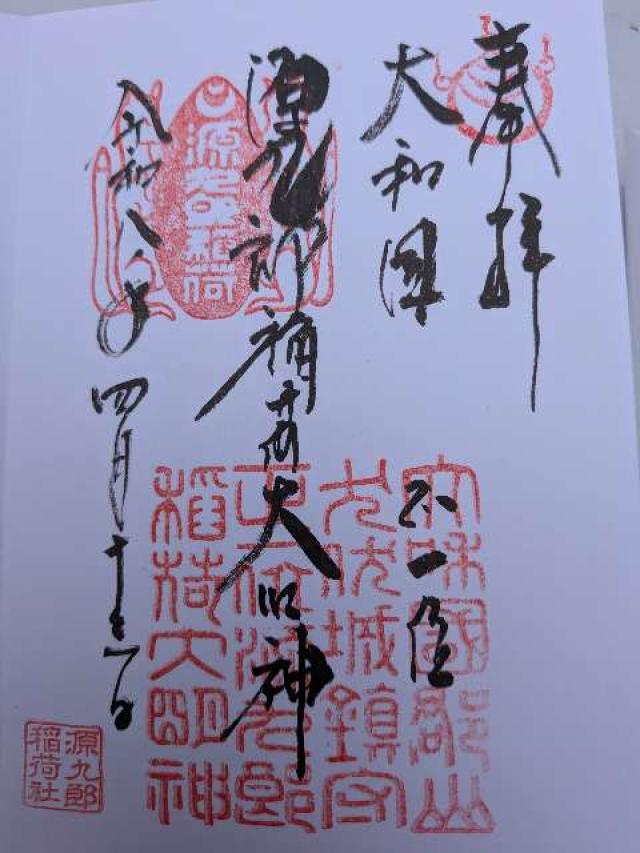 奉拝
大和國
正一位
源九郎稲荷大明神
令和八年四月十三日
源九郎稲荷
大和國郡山
九伏城鎮守
正一位源九郎
稲荷大明神
源九郎
稲荷社